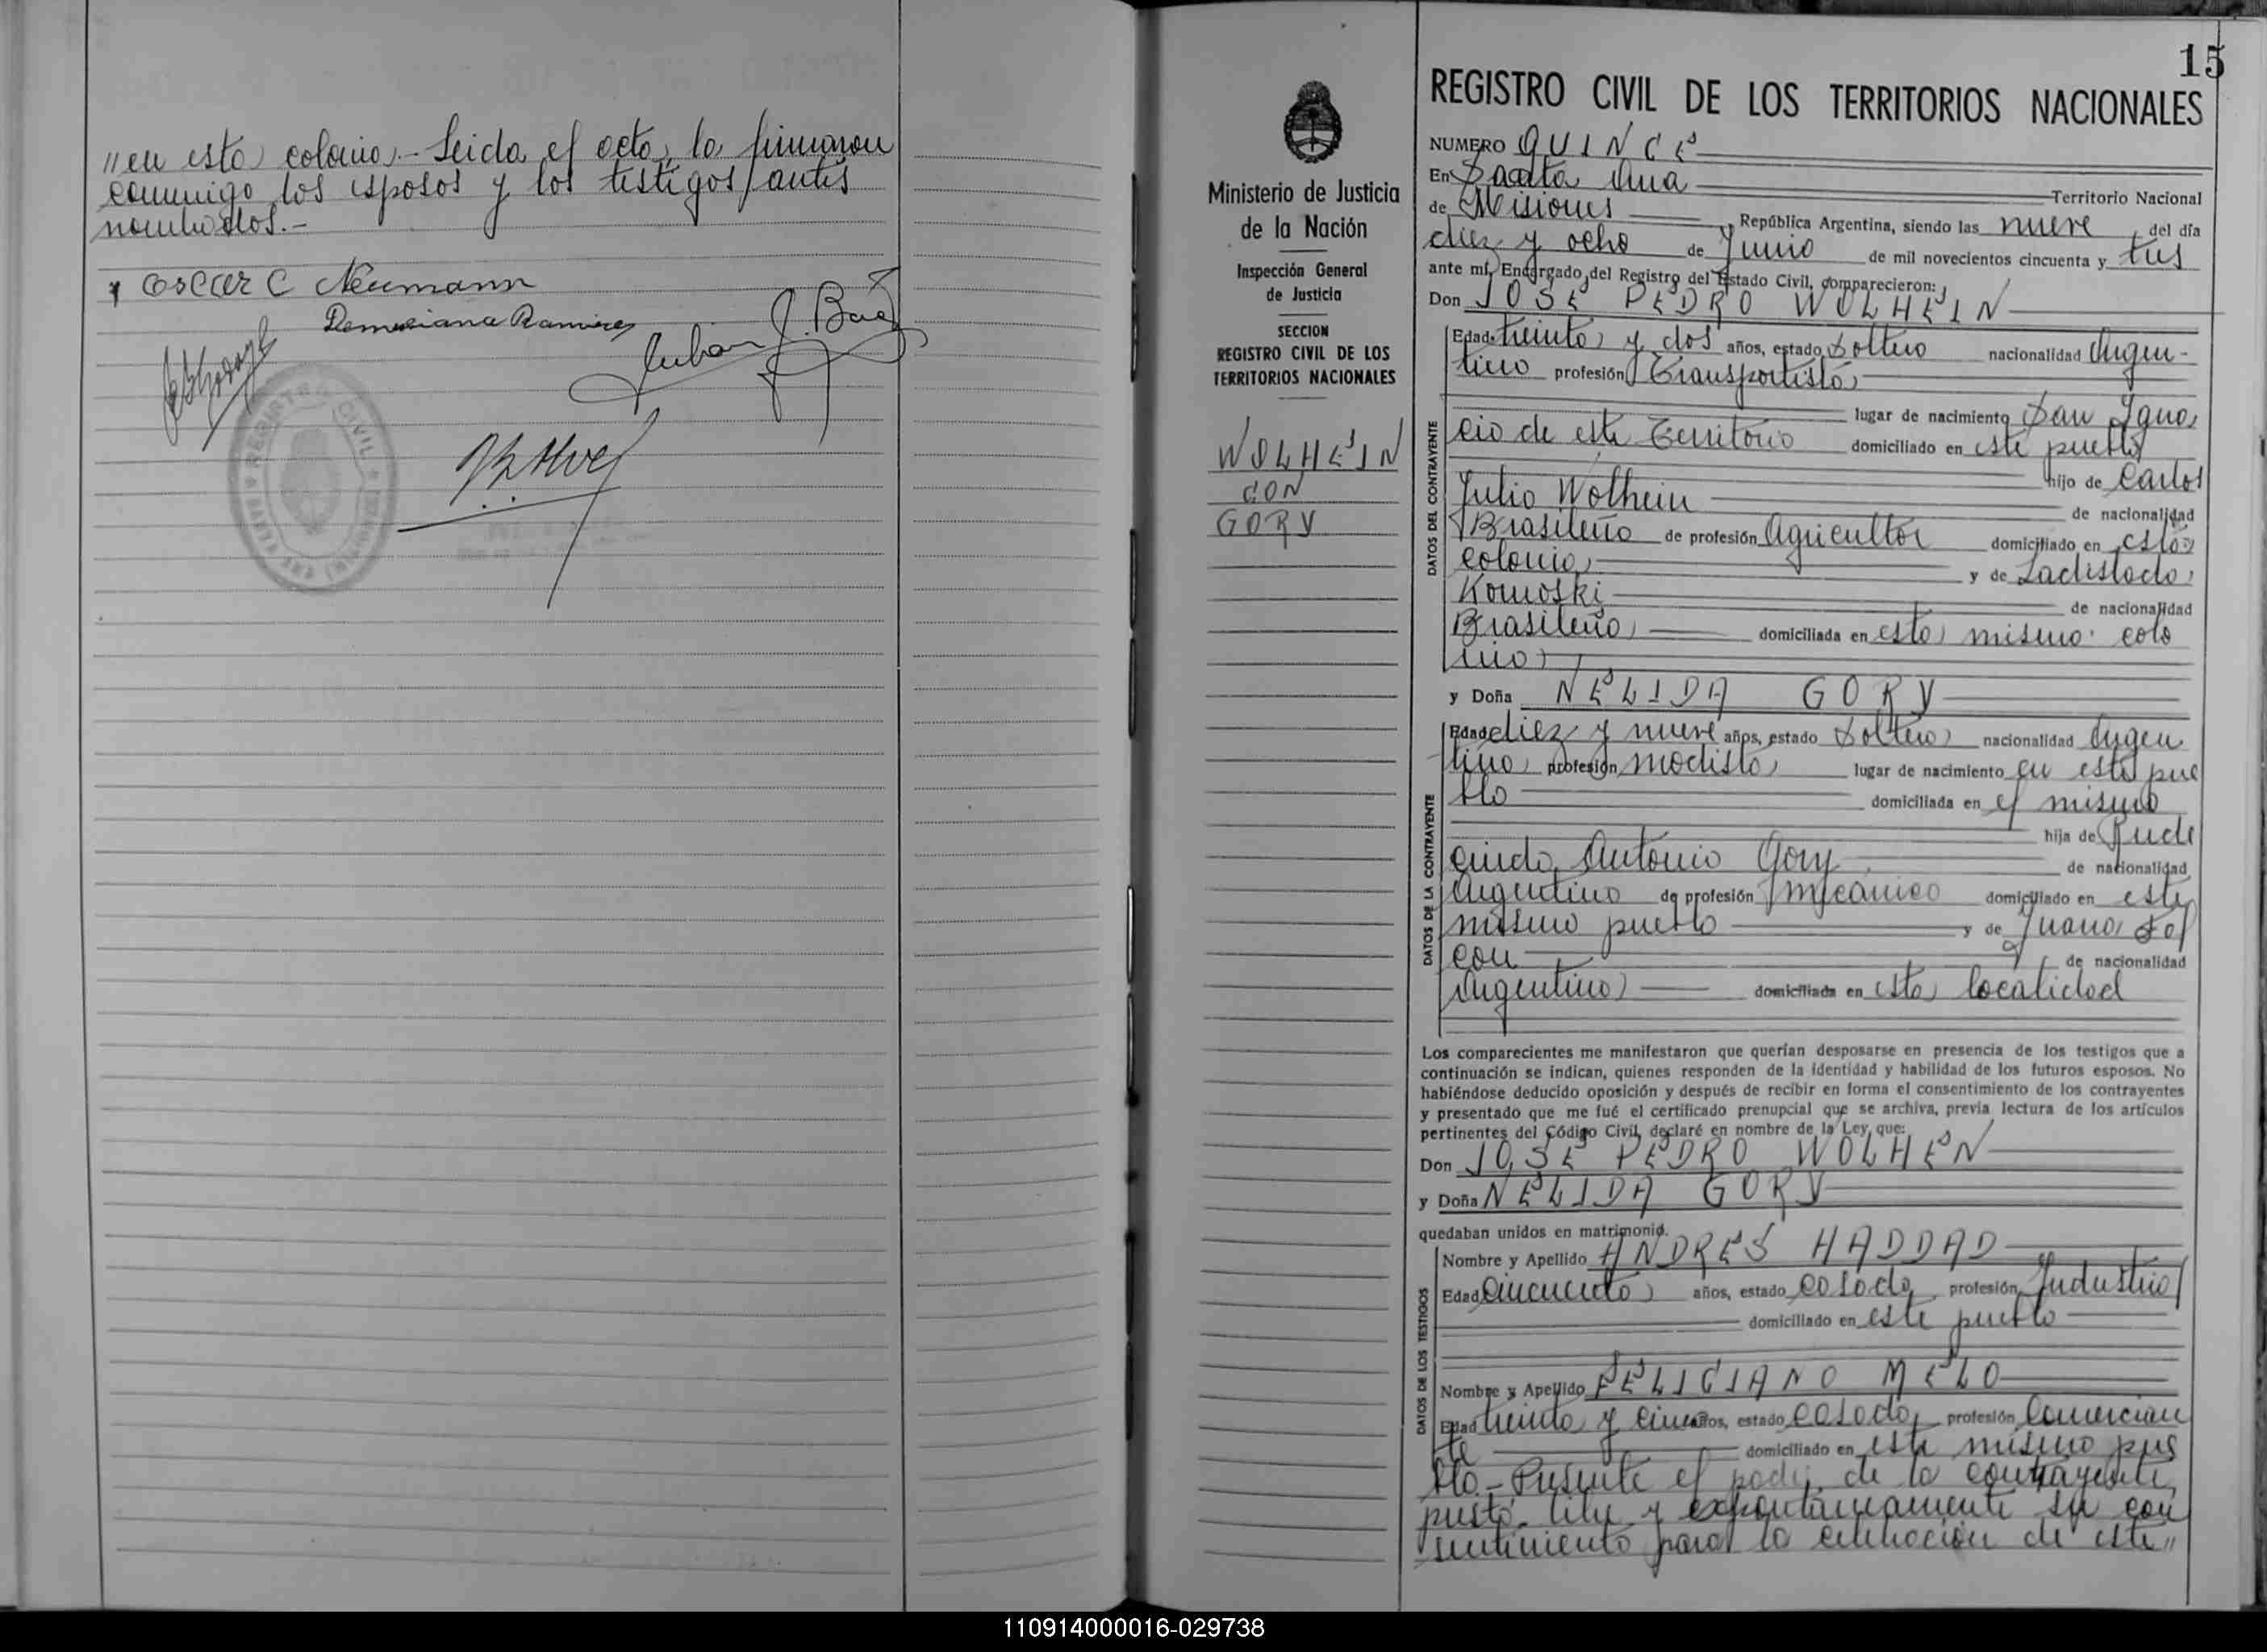 "en esta colonia.- Leida el acta, la firmaron
conmigo los esposos y los testigos antes
nombrados.-
Oscar C Neumann
Demesiana Ramirez
J. Baez
REGISTRO CIVIL
SANTA ANA (MISIONES)
15
REGISTRO CIVIL DE LOS TERRITORIOS NACIONALES
Ministerio de Justicia
de la Nación
Inspección General
de Justicia
SECCION
REGISTRO CIVIL DE LOS
TERRITORIOS NACIONALES
WOLHEIN
CON
GORY
NUMERO QUINCE
En Santa Ana Territorio Nacional
de Misiones, República Argentina, siendo las nueve del día
diez y ocho de Junio de mil novecientos cincuenta y tres
ante mí, Encargado del Registro del Estado Civil, comparecieron:
Don JOSE PEDRO WOLHEIN
DATOS DEL CONTRAYENTE
Edad treinta y dos años, estado soltero nacionalidad Argen-
tino profesión Transportista
lugar de nacimiento San Igna
cio de este Territorio domiciliado en este pueblo
hijo de Carlos
Julio Wolhein de nacionalidad
Brasileño de profesión Agricultor domiciliado en esta
colonia y de Ladislada
Komoski de nacionalidad
Brasileña domiciliada en esta misma colo
nia
y Doña NELIDA GORY
DATOS DE LA CONTRAYENTE
Edad diez y nueve años, estado soltera nacionalidad Argen
tina profesión modista lugar de nacimiento en este pue
blo domiciliada en el mismo
hija de Rude
cindo Antonio Gory de nacionalidad
Argentino de profesión mecanico domiciliado en este
mismo pueblo y de Juana Fal
con de nacionalidad
Argentina domiciliada en esta localidad
Los comparecientes me manifestaron que querían desposarse en presencia de los testigos que a
continuación se indican, quienes responden de la identidad y habilidad de los futuros esposos. No
habiéndose deducido oposición y después de recibir en forma el consentimiento de los contrayentes
y presentado que me fué el certificado prenupcial que se archiva, previa lectura de los artículos
pertinentes del Código Civil, declaré en nombre de la Ley, que:
Don JOSE PEDRO WOLHEN
y Doña NELIDA GORY
quedaban unidos en matrimonio.
DATOS DE LOS TESTIGOS
Nombre y Apellido ANDRES HADDAD
Edad cincuenta años, estado casado profesión Industrial
domiciliado en este pueblo
Nombre y Apellido FELICIANO MELO
Edad treinta y cinco años, estado casado, profesión Comercian
te domiciliado en este mismo pue
blo.- Presente el padre de la contrayente,
prestó libre y expontaneamente su con
sentimiento para la celebración de este"
110914000016-029738